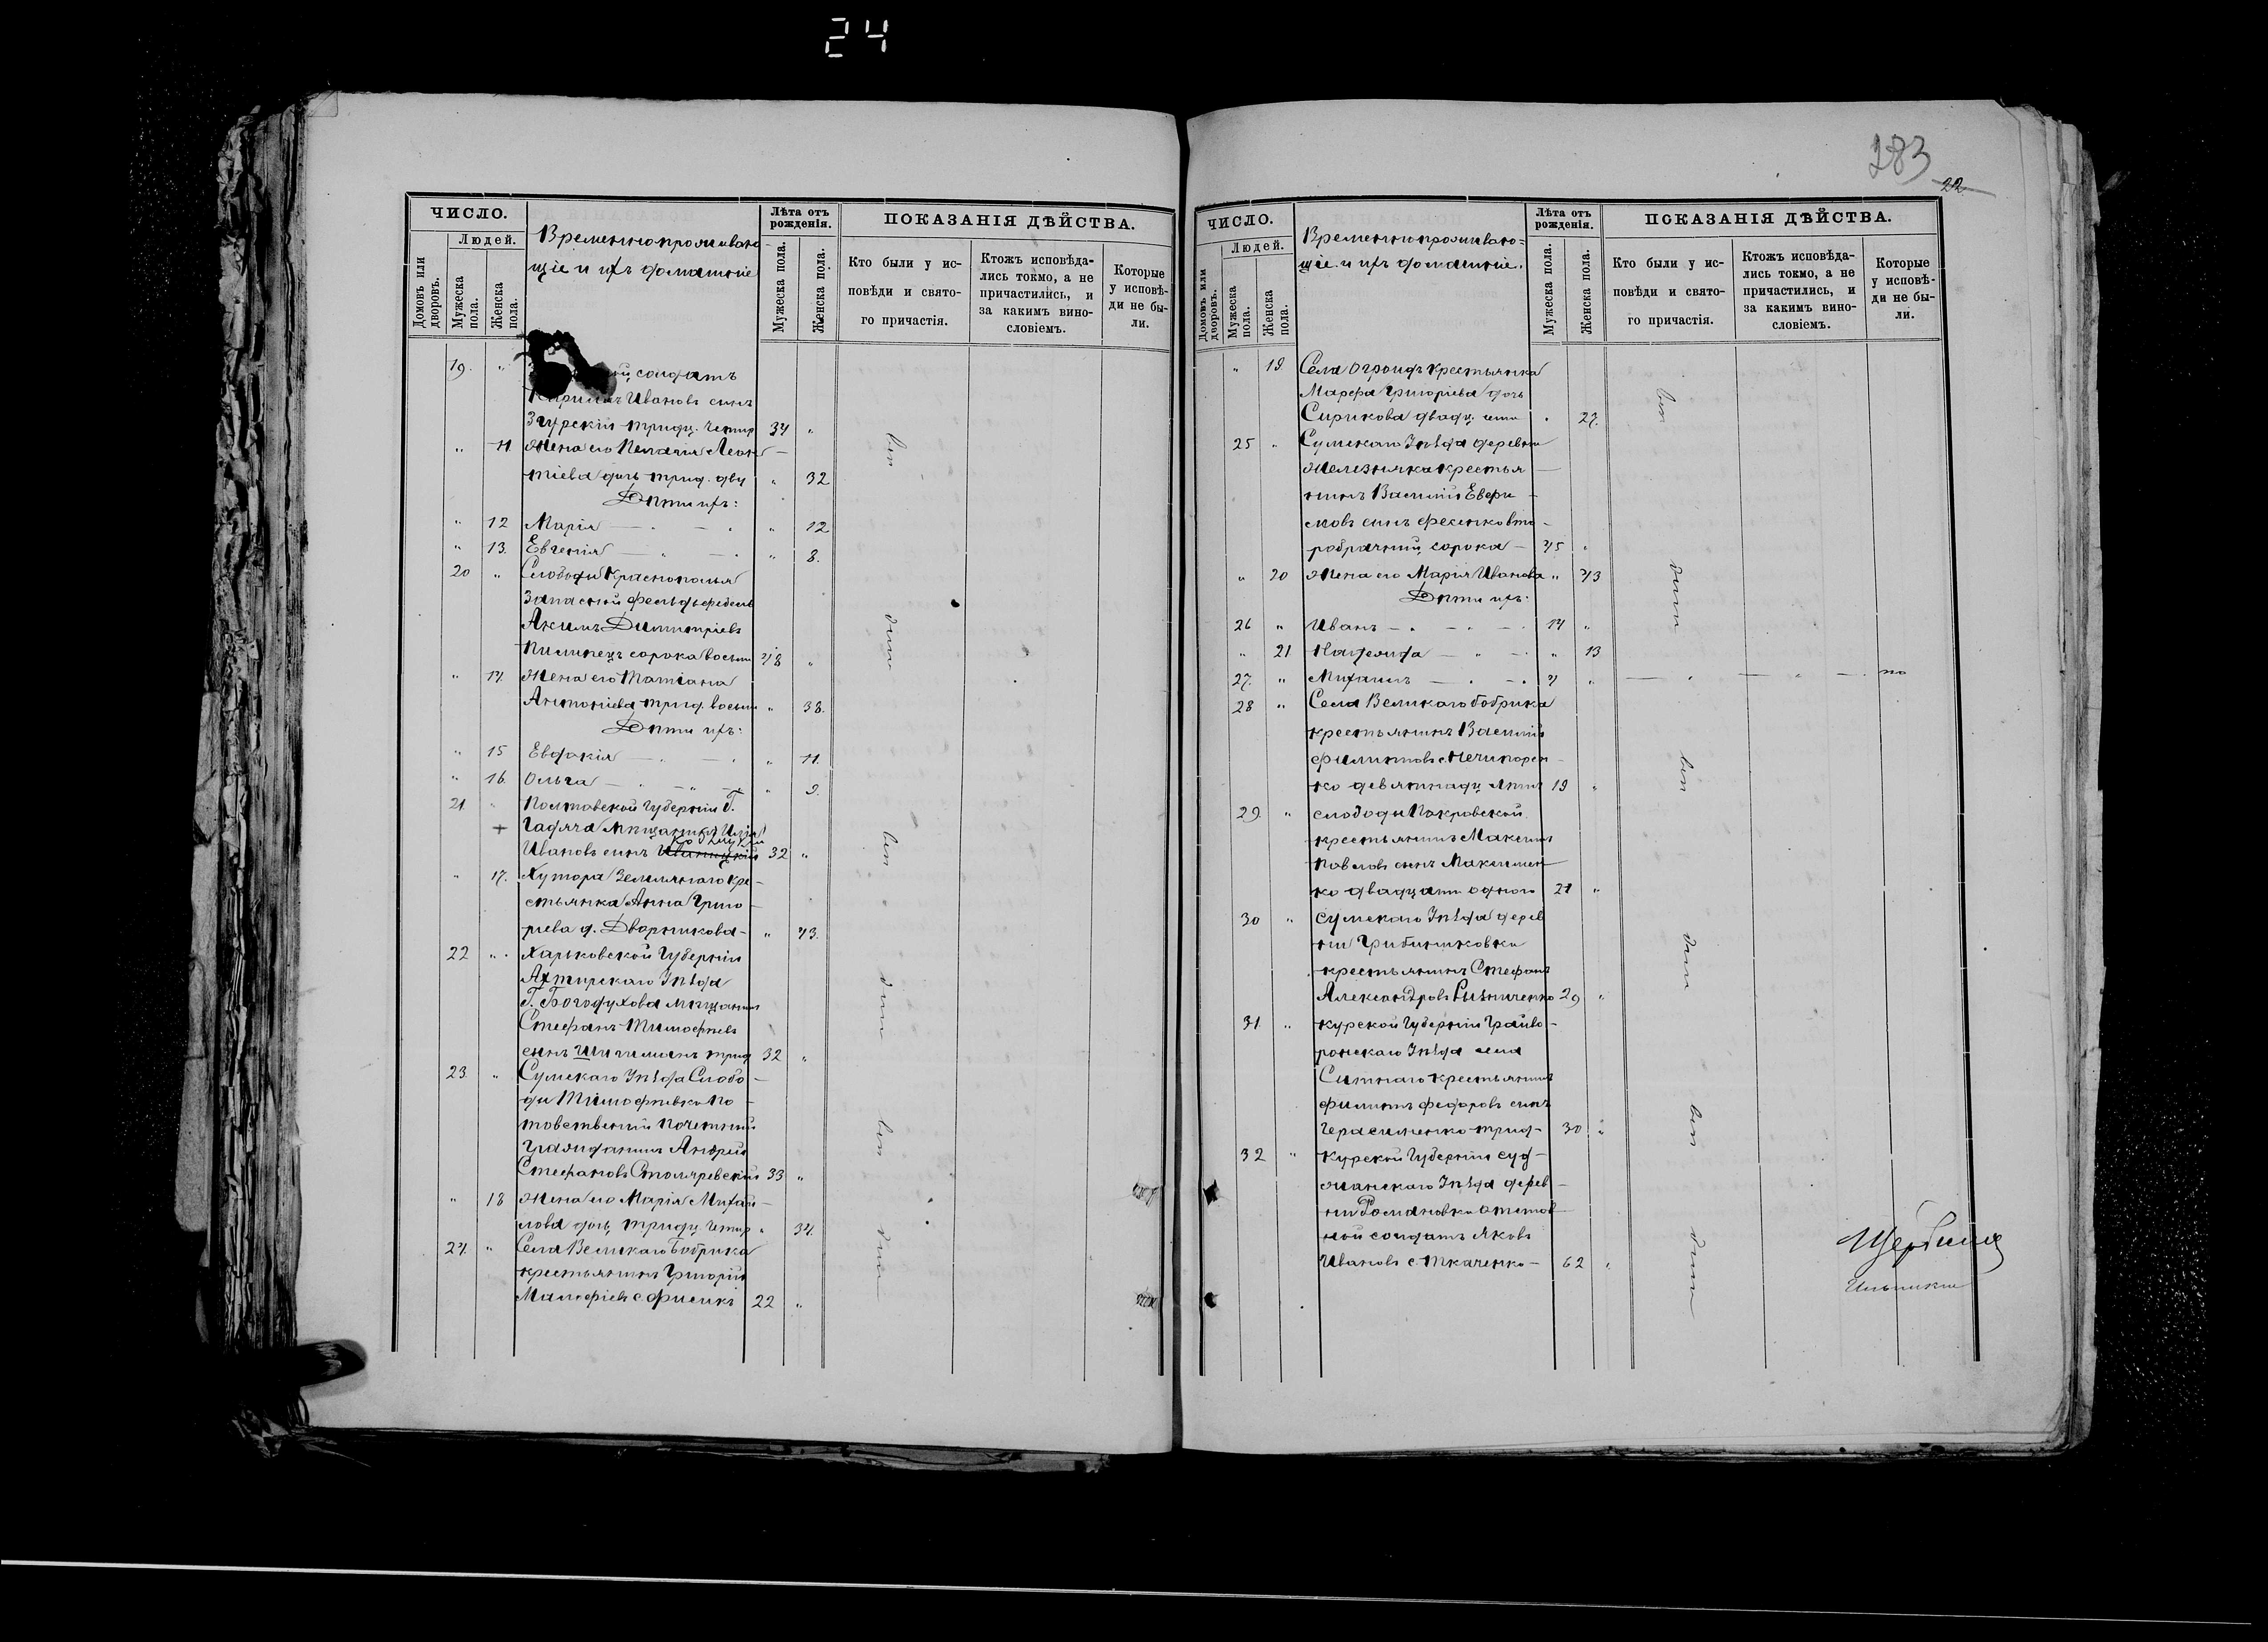 24
283
22
ЧИСЛО.
Людей.
Домовъ или дворовъ.
Мужеска пола.
Женска пола.
Временнопроживаю-
щіе и ихъ домашніе
Лѣта отъ рожденія.
Мужеска пола.
Женска пола.
ПОКАЗАНІЯ ДѢЙСТВА.
Кто были у ис-
повѣди и свято-
го причастія.
Ктожъ исповѣда-
лись токмо, а не
причастились, и
за какимъ вино-
словіемъ.
Которые
у исповѣ-
ди не бы-
ли.
19. " солдатъ
Ивановъ сынъ
Згурскій тридц. четыр 34 "
" 11. Жена его Пелагія Леон-
тіева дочь трид. два " 32
Дѣти ихъ:
" 12 Марія " 12
" 13. Евгенія " 8.
20 " Слободы Краснополья
Запасный фельдфебель
Акимъ Димитріевъ
Пилипецъ сорока восьми 48 "
" 14. Жена его Татіана
Антоніева трид. восьми " 38.
Дѣти ихъ:
" 15 Евдокія " 11.
" 16. Ольга " 9.
21. " Полтавской Губерніи Г.
+ Гадяча мѣщанинъ Илія
Ивановъ сынъ 32 "
" 17. Хутора Землянаго кре-
стьянка Анна Григо-
рьева д. Дворникова " 43.
22 " Харьковской Губерніи
Ахтырскаго Уѣзда
Г. Богодухова мѣщанинъ
Стефанъ Тимофѣевъ
сынъ трид 32 "
23. " Сумскаго Уѣзда Слобо-
ды Тимофѣевка По-
товственный Почетный
Гражданинъ Андрей
Стефановъ Столяревскій 33 "
" 18 Жена его Марія Михай-
лова дочь тридц. четыр " 34.
24. " Села Великаго Бобрика
крестьянинъ Григорій
22 "
всѣ
были
всѣ
были
всѣ
были
ЧИСЛО.
Людей.
Домовъ или дворовъ.
Мужеска пола.
Женска пола.
Временнопроживаю-
щіе и ихъ домашніе.
Лѣта отъ рожденія.
Мужеска пола.
Женска пола.
ПОКАЗАНІЯ ДѢЙСТВА.
Кто были у ис-
повѣди и свято-
го причастія.
Ктожъ исповѣда-
лись токмо, а не
причастились, и
за какимъ вино-
словіемъ.
Которые
у исповѣ-
ди не бы-
ли.
" 19. Села крестьянка
Марфа Григоріева дочь
Сирикова двадц. семи " 27.
25 " Сумскаго Уѣзда деревни
Железняка крестья-
нинъ Василій Евфи-
мовъ сынъ Фесенко вто-
робрачный сорока 45 "
" 20 Жена его Марія Иванова " 43
Дѣти ихъ:
26 " Иванъ 14 "
" 21 " 13
27. " Михаилъ 4 " по
28 " Села Великаго Бобрика
крестьянинъ Василій
Филиповъ с. Нечипорен-
ко девятнадц лѣтъ 19 "
29. " слободы Покровской
крестьянинъ Максимъ
Павловъ сынъ Максимен-
ко двадцати одного 21 "
30 " Сумскаго Уѣзда дерев
ни
крестьянинъ Стефанъ
Александровъ 29 "
31. " Курской Губерніи Грайво-
ронскаго Уѣзда села
крестьянинъ
Филипъ Федоровъ сынъ
Герасименко трид- 30 "
32 " Курской Губерніи Суд-
жанскаго Уѣзда дерев-
ни Романовка отстав
ной солдатъ Яковъ
Ивановъ с. Ткаченко 62 "
всѣ
были
всѣ
были
всѣ
были